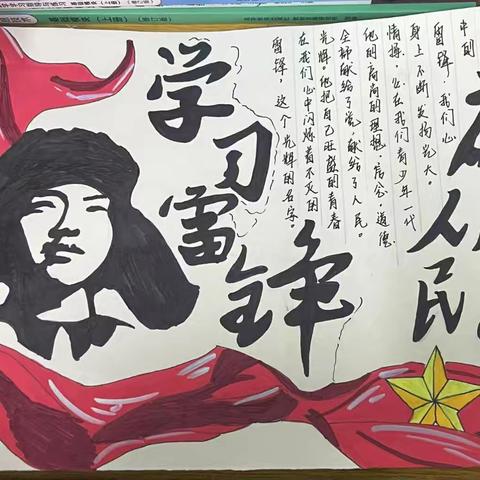 学习雷锋
雷锋，这个光辉的名字。
在我们心中闪烁着不灭的
光辉。他把自己旺盛的青春
全部献给了党，献给了人民。
他的高尚的理想、信念、道德
情操，必在我们青少年一代
身上不断发扬光大。
雷锋，我们心
中的
人民